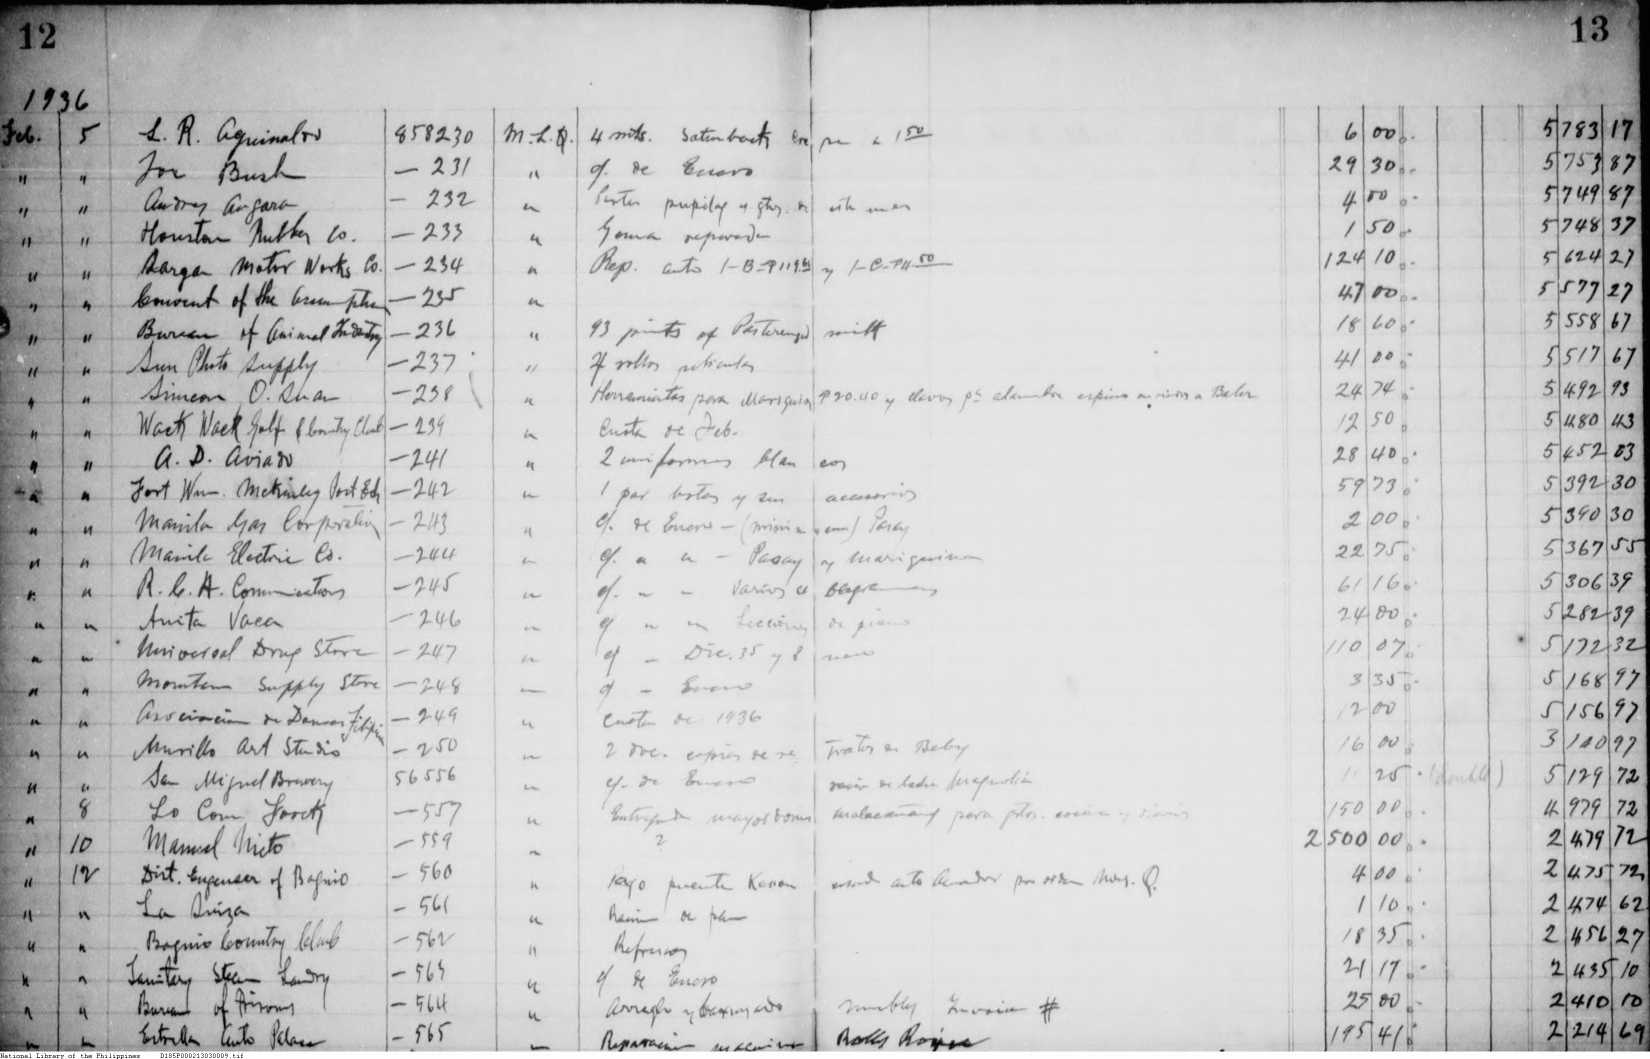 12 13
1936
Feb. 5 L. R. Aguinaldo 858230 M.L.Q. 4 mts. a 1 50 6 00 5783 17
" " Joe Bush — 231 " cf. de Enero 29 30 5753 87
" " Andres Angara — 232 " 4 00 5749 87
" " Houston Rubber Co. — 233 " Goma reparada 1 50 5748 37
" " Bargan Motor Works Co. — 234 " Rep. auto 1-B-₱119.60 y 1-C-₱4.50 124 10 5624 27
" " Convent of the Assumption — 235 " 47 00 5577 27
" " Bureau of Animal Industry — 236 " 93 pints of Pasteurized milk 18 60 5558 67
" " Sun Photo Supply — 237 " rollos peliculas 41 00 5517 67
" " Simeon O. — 238 " Herramientas para Mariquina ₱20.40 y clavos pa alambre espino a Baler 24 74 5492 93
" " Wack Wack Golf & Country Club — 239 " Cuota de Feb. 12 50 5480 43
" " A. D. Aviado — 241 " 2 uniformes blancos 28 40 5452 03
" " Fort Wm. McKinley Post Exch — 242 " 1 par botas y sus accesorios 59 73 5392 30
" " Manila Gas Corporation — 243 " cf. de Enero — Pasay 2 00 5390 30
" " Manila Electric Co. — 244 " cf. " " — Pasay y Mariquina 22 75 5367 55
" " R. C. A. Communications — 245 " cf. " " Varios 61 16 5306 39
" " Anita Vaca — 246 " cf " " Lecciones de piano 24 00 5282 39
" " Universal Drug Store — 247 " cf — Dic. 35 y Enero 110 07 5172 32
" " Mountain Supply Store — 248 " cf — Enero 3 35 5168 97
" " Asociacion de Damas Filipinas — 249 " Cuota de 1936 12 00 5156 97
" " Murillo Art Studio — 250 " 2 doc. copias de retratos de Baby 16 00 3140 97
" " San Miguel Brewery 56556 " cf. de Enero de leche Magnolia 11 25 5129 72
" 8 Lo Com — 557 " Entregado mayordomo Malacañang para gtos. cocina y 150 00 4979 72
" 10 Manuel Nieto — 559 " ? 2500 00 2479 72
" 12 Dist. Engineer of Baguio — 560 " Pago puente Kennon auto por orden Mrs. Q. 4 00 2475 72
" " La Suiza — 561 " de pan 1 10 2474 62
" " Baguio Country Club — 562 " Refrescos 18 35 2456 27
" " Sanitary Steam Laundry — 563 " cf de Enero 21 17 2435 10
" " Bureau of Prisons — 564 " Arreglo y barnizado muebles Invoice # 25 00 2410 10
" " Estrella Auto Palace — 565 " Reparacion maquina Rolls Royce 195 41 2214 69
National Library of the Philippines D185P000213030009.tif